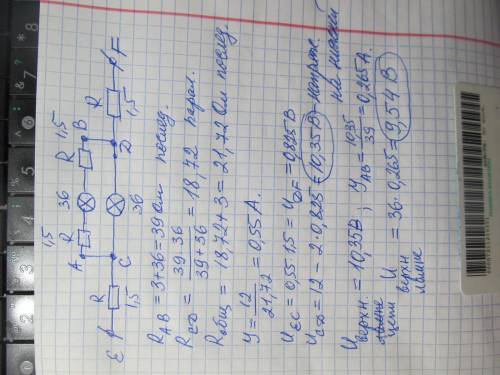 1,5 36 1,5
A R R B
E R C D R F
1,5 36 1,5
R_AB = 3+36 = 39 Ом посл.
R_CD = 39·36 / 39+36 = 18,72 парал.
R_общ = 18,72+3 = 21,72 Ом посл.
У = 12 / 21,72 = 0,55 А.
U_EC = 0,55·1,5 = U_DF = 0,825 В
U_CD = 12 - 2·0,825 = 10,35 В - напряж.
на нижней
U_верхн. цепи = 10,35 В ; У_AB = 10,35 / 39 = 0,265 А.
U_верхн лампе = 36·0,265 = 9,54 В